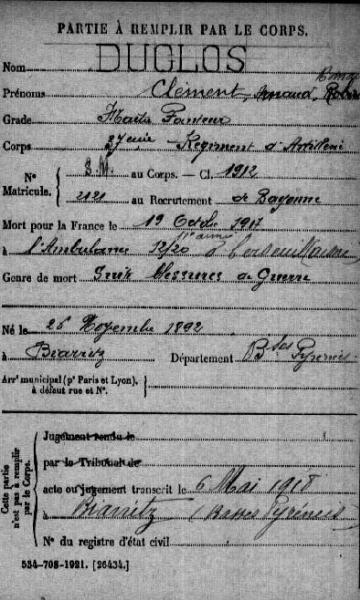 PARTIE À REMPLIR PAR LE CORPS.
Nom DUCLOS
Prénoms Clément, Arnaud, Robert
Grade Maître Pointeur
Corps 37eme Régiment d'Artillerie
N° Matricule. S.M. au Corps. — Cl. 1912
2121 au Recrutement de Bayonne
Mort pour la France le 19 Octobre 1917
à l'Ambulance 12/20
Genre de mort Suite Blessures de Guerre
Né le 26 Novembre 1892
à Biarritz Département Bses Pyrénées
Arrt municipal (pr Paris et Lyon), à défaut rue et N°.
Cette partie n'est pas à remplir par le Corps.
Jugement rendu le
par le Tribunal de
acte ou jugement transcrit le 6 Mai 1918
à Biarritz (Basses Pyrénées
N° du registre d'état civil
534-708-1921. [26434.]